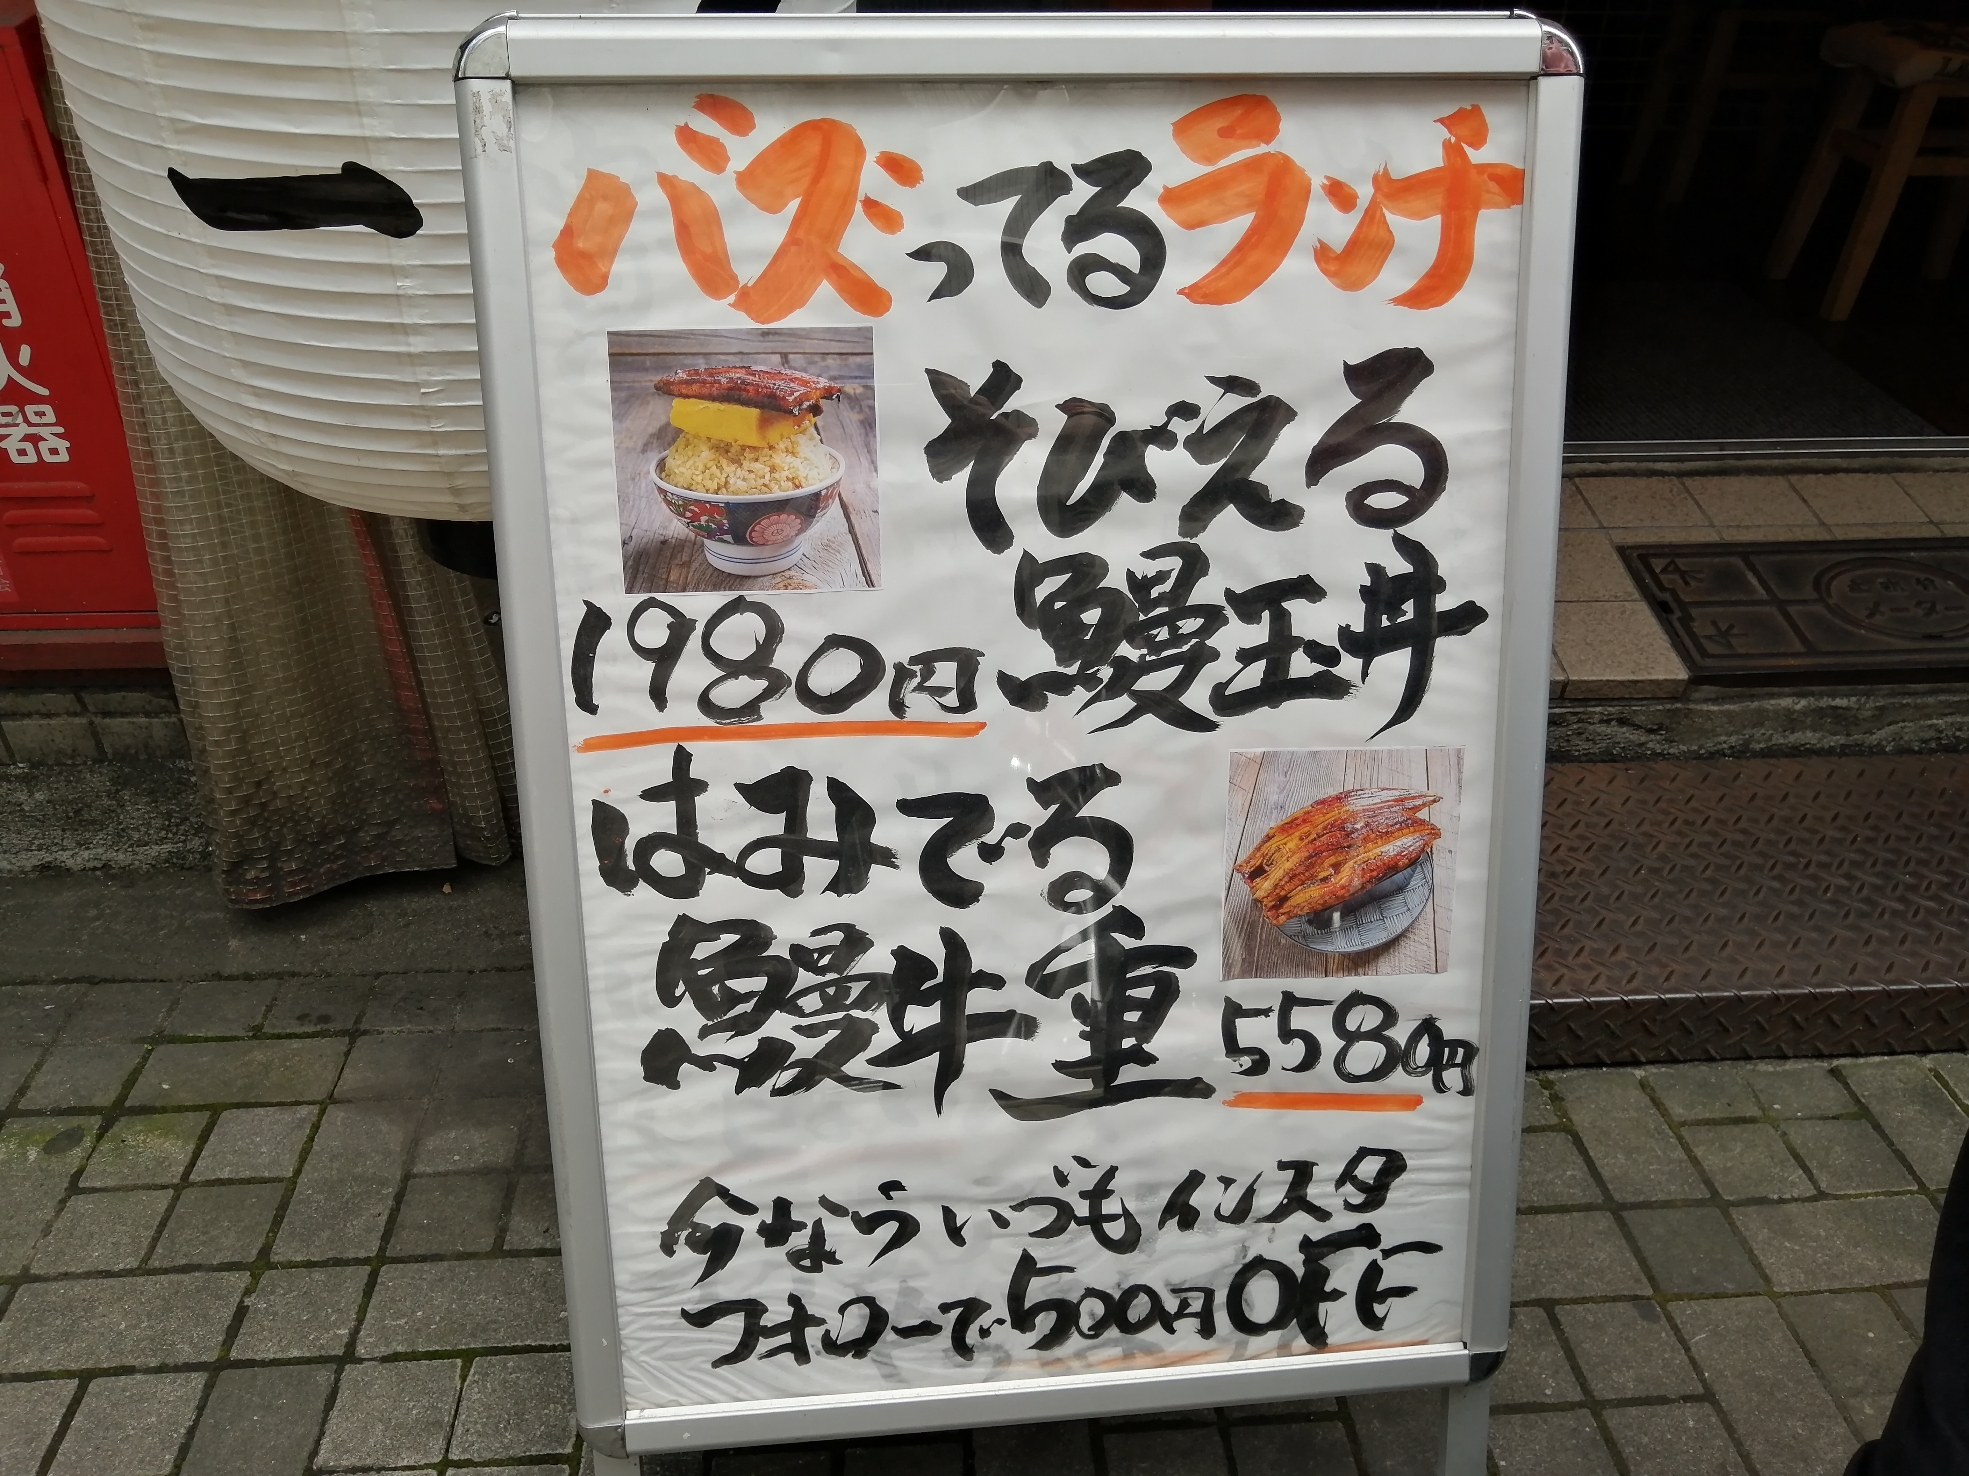 バズってるランチ
そびえる
鰻玉丼
1980円
はみでる
鰻牛重
5580円
今ならいつもインスタ
フォローで500円OFF
一
消火器